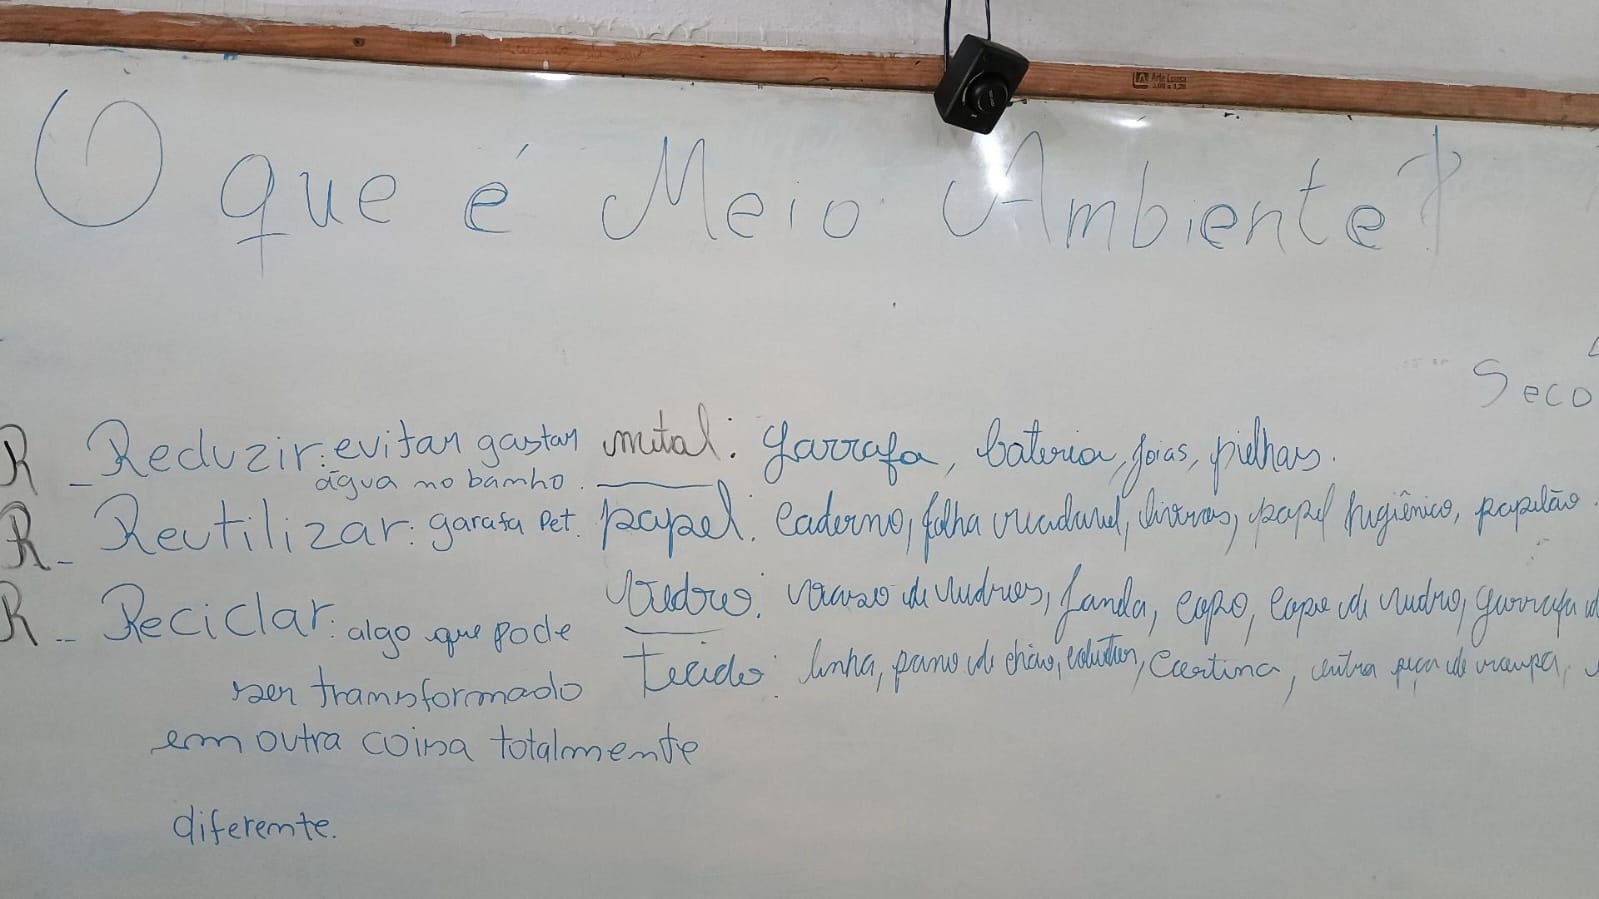 O que é Meio Ambiente?
Seco
R - Reduzir: evitar gastar
água no banho.
R - Reutilizar: garafa Pet.
R - Reciclar: algo que pode
ser transformado
em outra coisa totalmente
diferente.
metal: garrafa, bateria, joias, pielhas.
papel: caderno, folha livros, papel higiênico, papelão.
vidro: vaso de vidros, janela, copo, copo de vidro, garrafa
tecido: linha, pano de chão, cortina, outra peça de roupa,
Arte Lousa